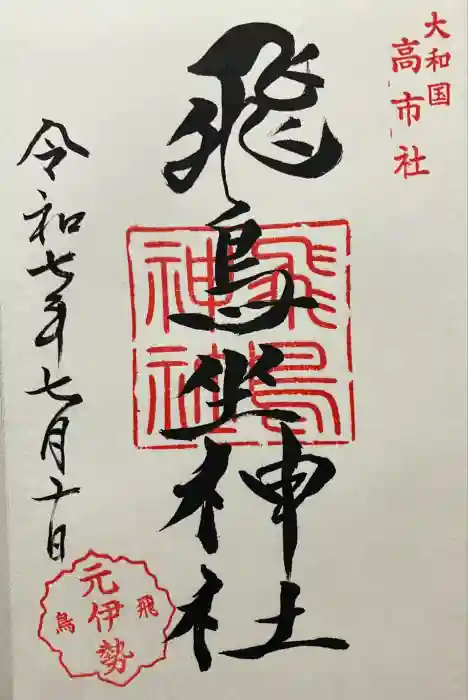 大和国
高市社
飛鳥坐神社
飛鳥
神社
令和七年七月十日
飛鳥
元伊勢